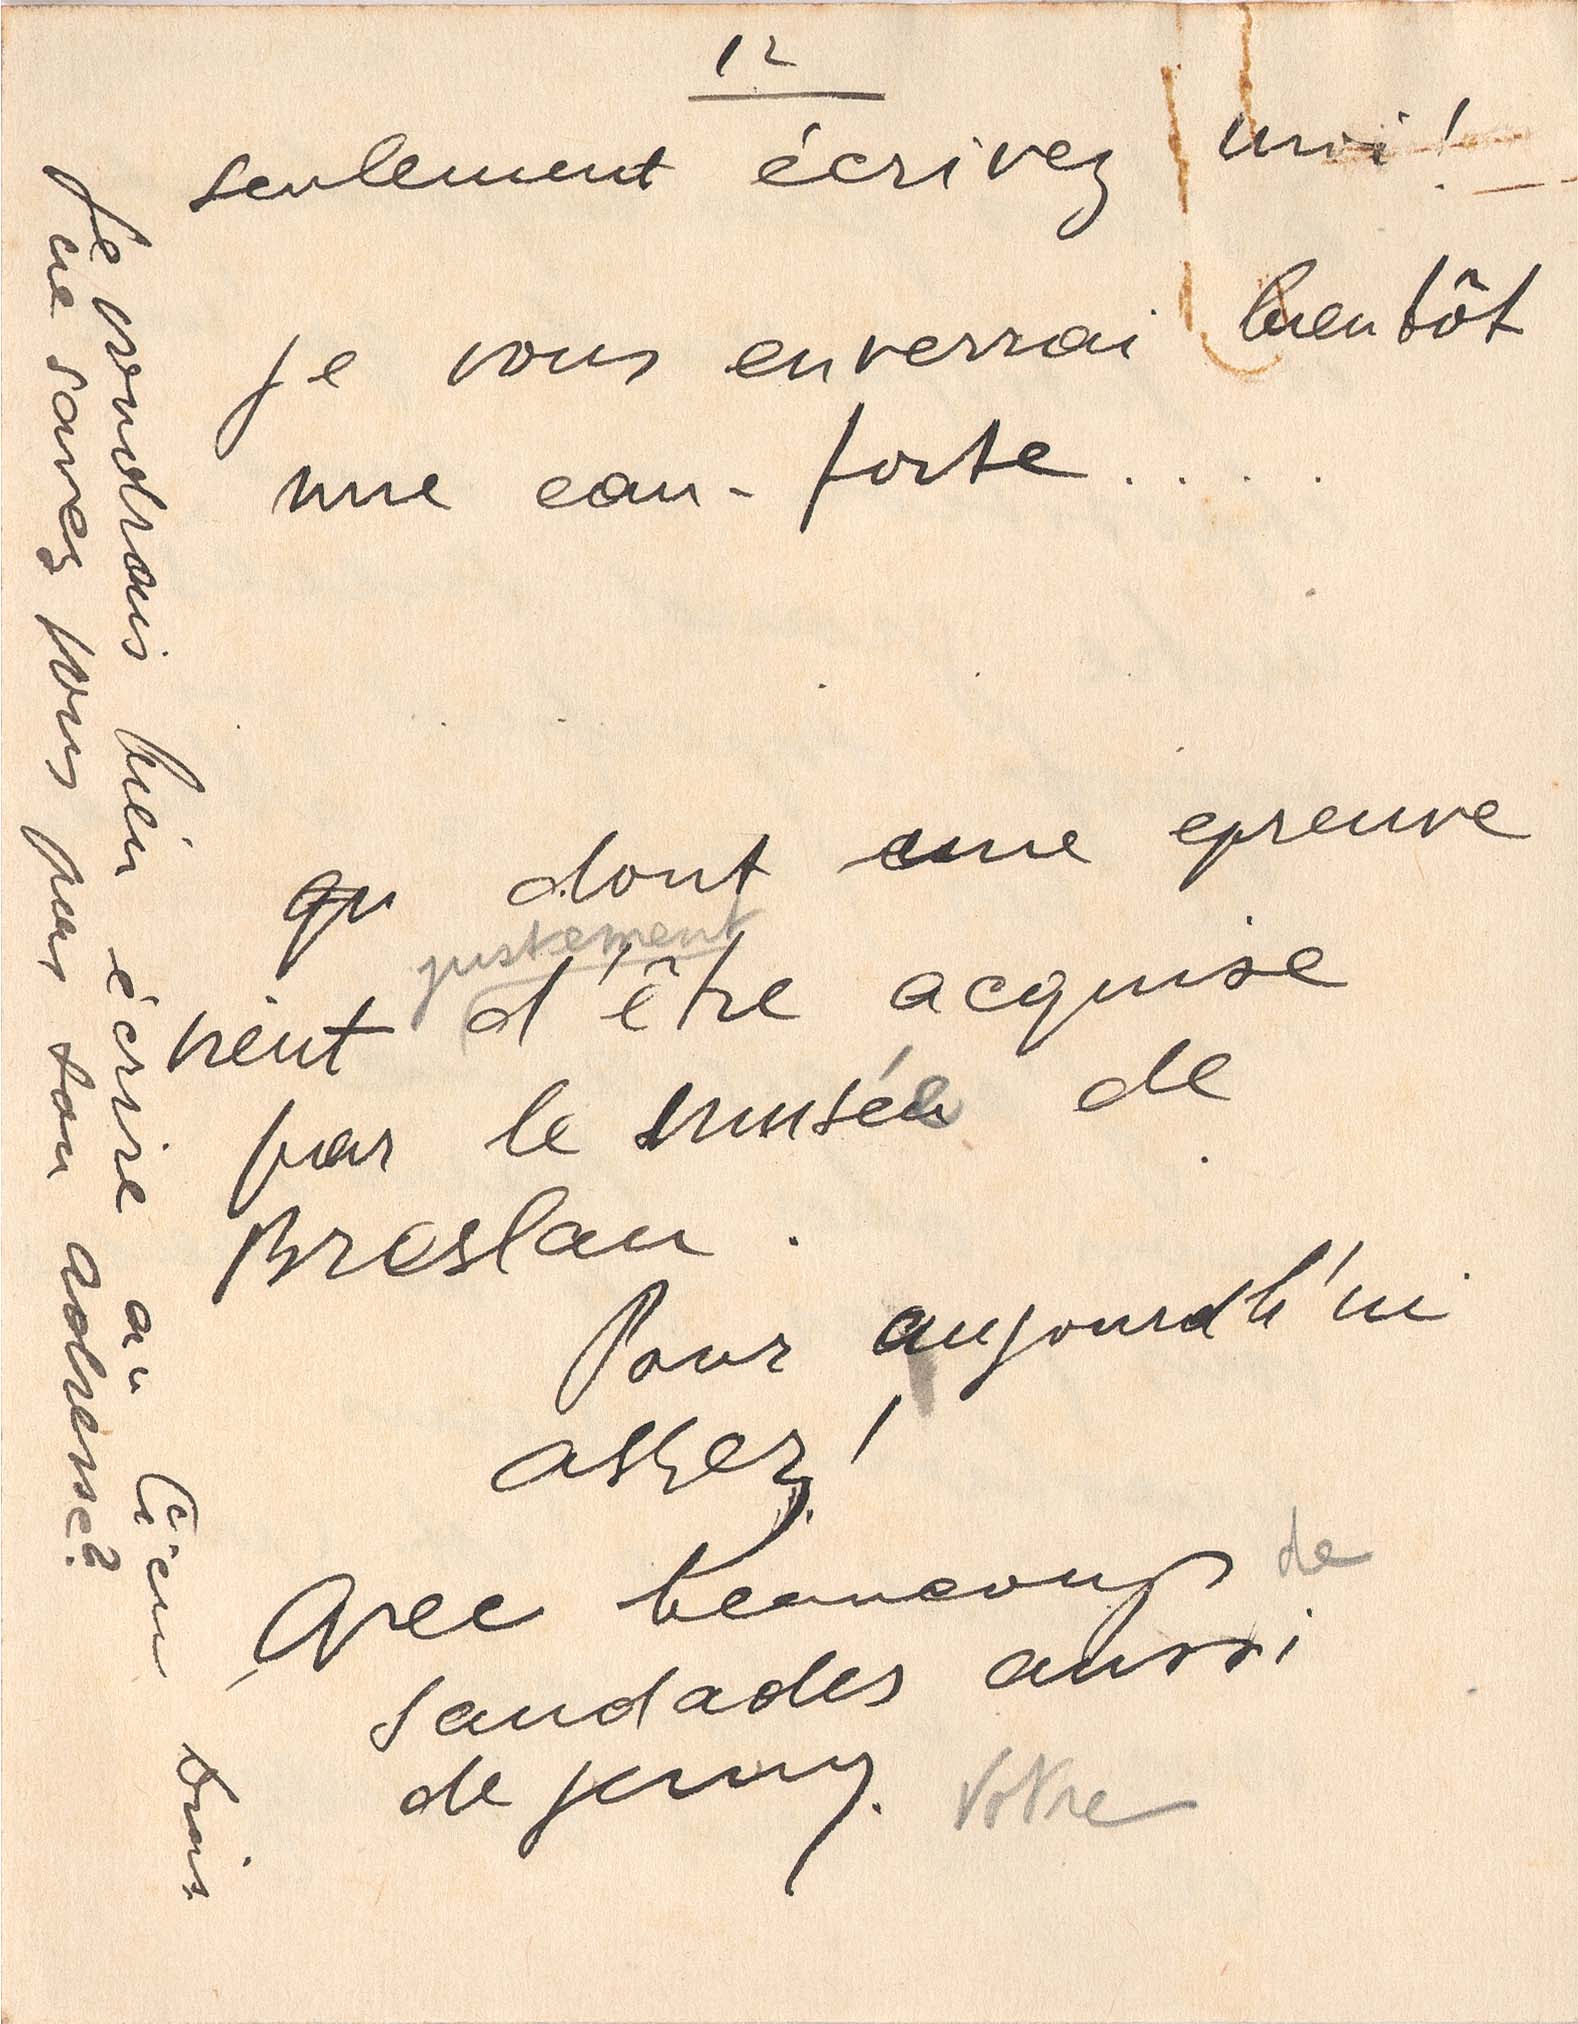 12
seulement écrivez moi!
je vous enverrai bientôt
une eau-forte....
qu dont une epreuve
justement
vient d'être acquise
par le musée de
Breslau.
Pour aujourdh'ui
assez!
Avec beaucoup de
saudades aussi
de Jenny. Votre
Je voudrais bien écrire à Cicero Dias.
ne savez vous pas son adresse?